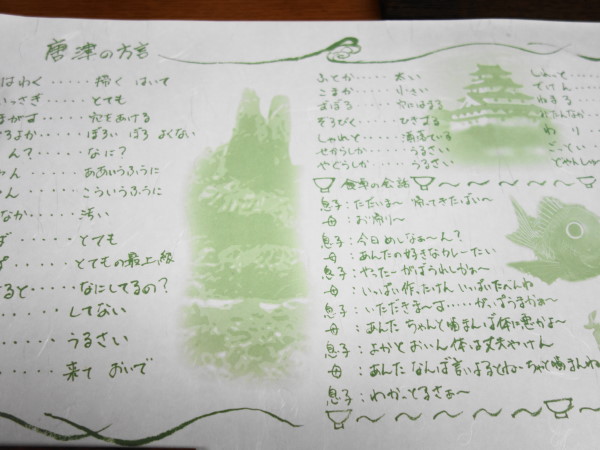 唐津の方言
はわく・・・・・掃く はいて
いっさぎ・・・・・とても
・・・・・穴をあける
ろよか・・・・・ぼろい ぼろ よくない
ん?・・・・・なに?
ゃん・・・・・ああいうふうに
ゃん・・・・・こういうふうに
なか・・・・・汚い
ば・・・・・とても
ぱ・・・・・とてもの最上級
ると・・・・・なにしてるの?
・・・・・してない
・・・・・うるさい
・・・・・来て おいで
ふとか・・・・・太い
こまか・・・・・小さい
ずぼろ・・・・・穴にはまる
そろびく・・・・・ひきずる
しゃれとう・・・・・
せからしか・・・・・うるさい
やぐらしか・・・・・うるさい
しぁっと・・・・・
でけん・・・・・
ねまる・・・・・
わり・・・・・
ごっとい・・・・・
とやんしゅ
食卓の会話
息子:ただいま〜 帰ってきたばい〜
母:お帰り〜
息子:今日めしなぁーん?
母:あんたの好きなカレーたい
息子:やったー がばうれしかぁ〜
母:いっぱい作ったけん いっぱいたべんね
息子:いただきまーす……がっぱうまかぁ〜
母:あんた ちゃんと噛まんば体に悪かよ〜
息子:よかとおいん体は丈夫やけん
母:あんた なんば言いよるとね〜ちゃんと噛まんね
息子:わかっとるさぁ〜